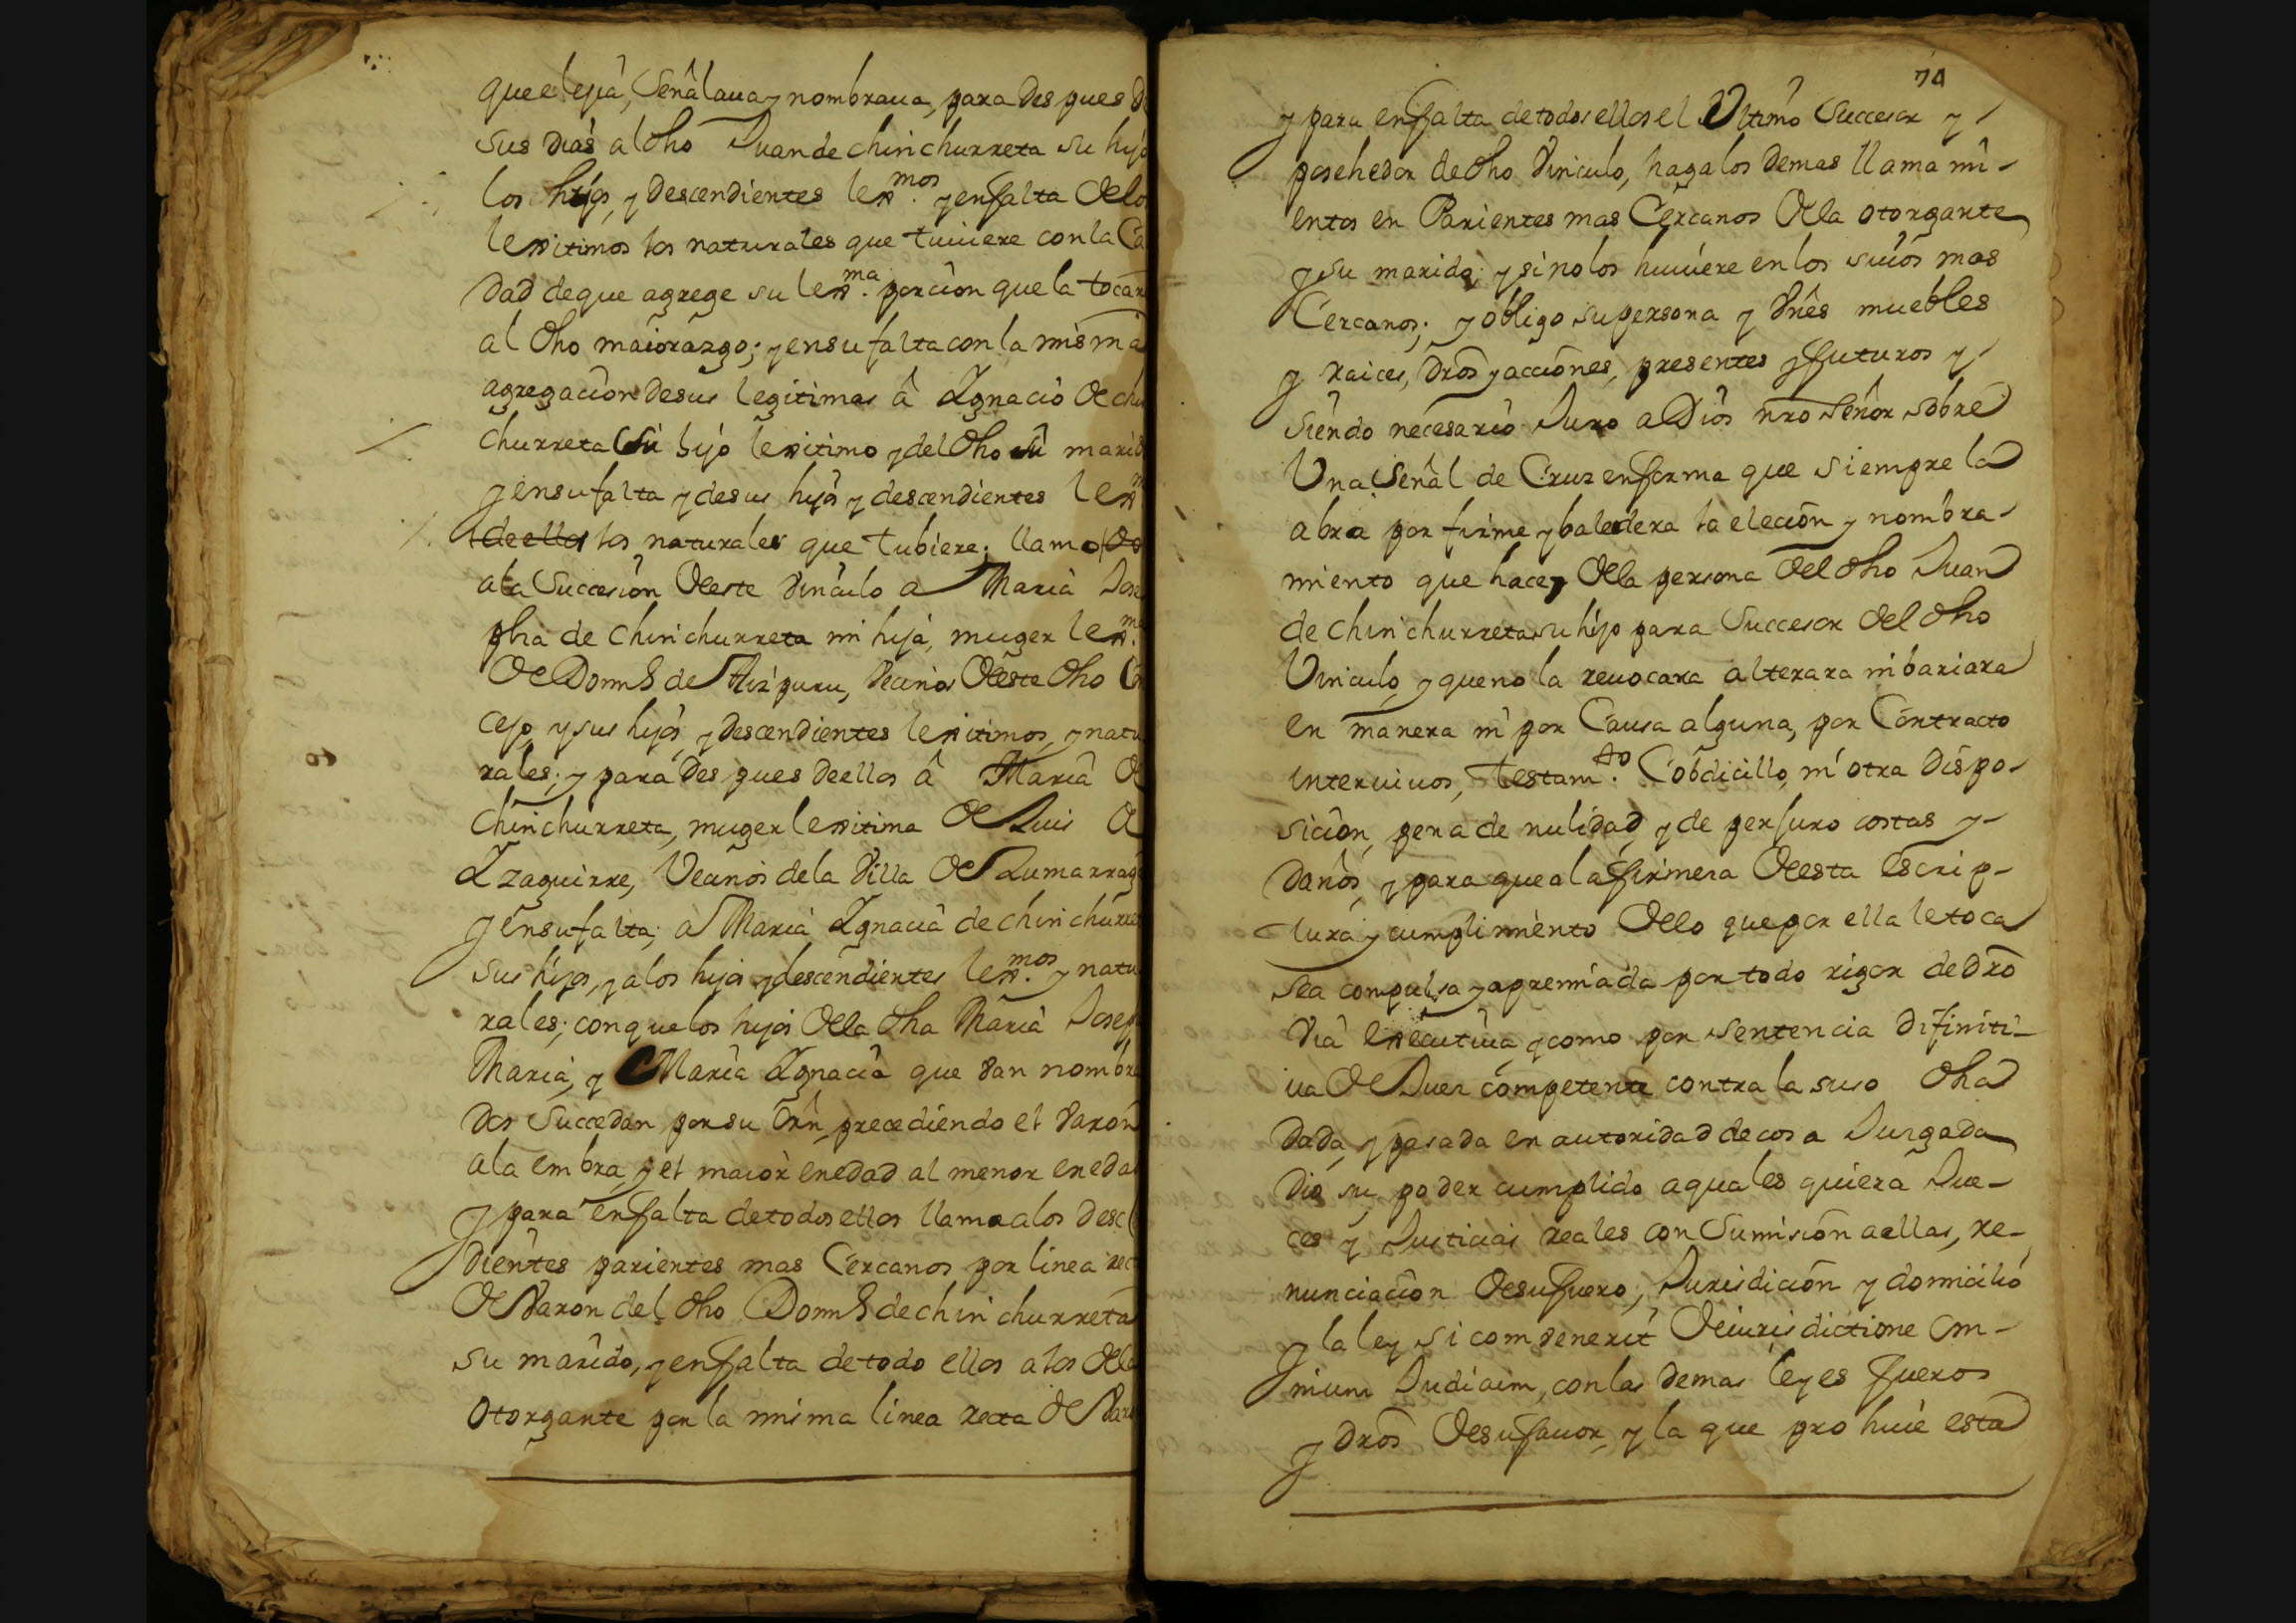 que elejia, Señalaua y nombraua, para despues d
sus dias al dho Juan de chirichurreta su hijo
los hijos, y descendientes lexmos. y en falta de lo
lexitimos los naturales que tuuiere con la Ca
dad de que agrege su lexma. porcion que la tocar
al dho maiorazgo; y en su falta con la misma
agregacion de sus legitimas â Ygnacio de chi
churreta su hijo lexitimo y del dho su marid
y en su falta y de sus hijos y descendientes lexm
de ellos los naturales que tubiere; llamo
a la Succesion de este vinculo a Maria Jose
pha de chirichurreta mi hija, muger lexma.
de Domns de Aizpuru, vecinos de este dho Con
cejo, y sus hijos, y descendientes lexitimos, y natu
rales; y para despues de ellos â Maria de
chirichurreta, muger lexitima de Luis de
Yzaguirre, Vecinos de la villa de Zumarrag
y en su falta; a Maria Ygnacia de chirichurre
sus hijos, y a los hijos y descendientes lexmos. y natu
rales; con que los hijos de la dha Maria Josep
Maria, y Maria Ygnacia que van nombra
dos Succedan por su orn, precediendo el varon
a la embra, y el maior en edad al menor en eda
y para en falta de todos ellos llama a los desc
dientes parientes mas Cercanos por linea rec
de varon del dho Domns de chirichurreta
su marido, y en falta de todo ellos a los de la
otorgante por la misma linea recta de Varo
74
y para en falta de todos ellos el Vltimo Succesor y
posehedor de dho vinculo, haga los demas llamami-
entos en Parientes mas Cercanos de la otorgante
y su marido; y si no los huuiere en los suios mas
Cercanos; y obligo su persona y vnes muebles
y raices, dros y acciones, presentes y futuros y
siendo necesario Juro a Dios nro señor sobre
Vna Señal de Cruz en forma que siempre la
abra por firme y baledera la elecion y nombra-
miento que hace de la persona del dho Juan
de chirichurreta su hijo para Succesor del dho
Vinculo, y que no la reuocara alterara ni bariara
en manera ni por Causa alguna, por Contracto
interuiuos, Testamto. Cobdicillo, ni otra dispo-
sicion, pena de nulidad, y de perjuro costas y
daños, y para que a la firmeza de esta escrip-
tura y cumplimiento de lo que por ella le toca
sea compulsa y apremiada por todo rigor de dro
via executiua, y como por sentencia difiniti-
ua de Juez competente contra la suso dha
dada, y pasada en autoridad de cosa Juzgada
dio su poder cumplido a quales quiera Jue-
ces y Justicias reales con Sumision a ellas, re-
nunciacion de su fuero, Jurisdicion y domicilio
y la ley si combenerit de iurisdictione om-
nium Judicum, con las demas leyes fueros
y dros de su fauor, y la que prohiuie esta